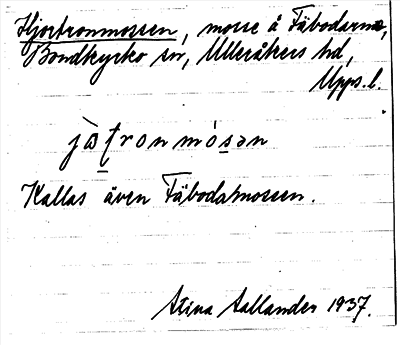 Hjortronmossen, mosse å Fäbodarne,
Bondkyrko sn, Ulleråkers hd,
Upps. l.
jo̅tronmósən
Kallas även Fäbodarmossen.
Stina Sallander 1937.